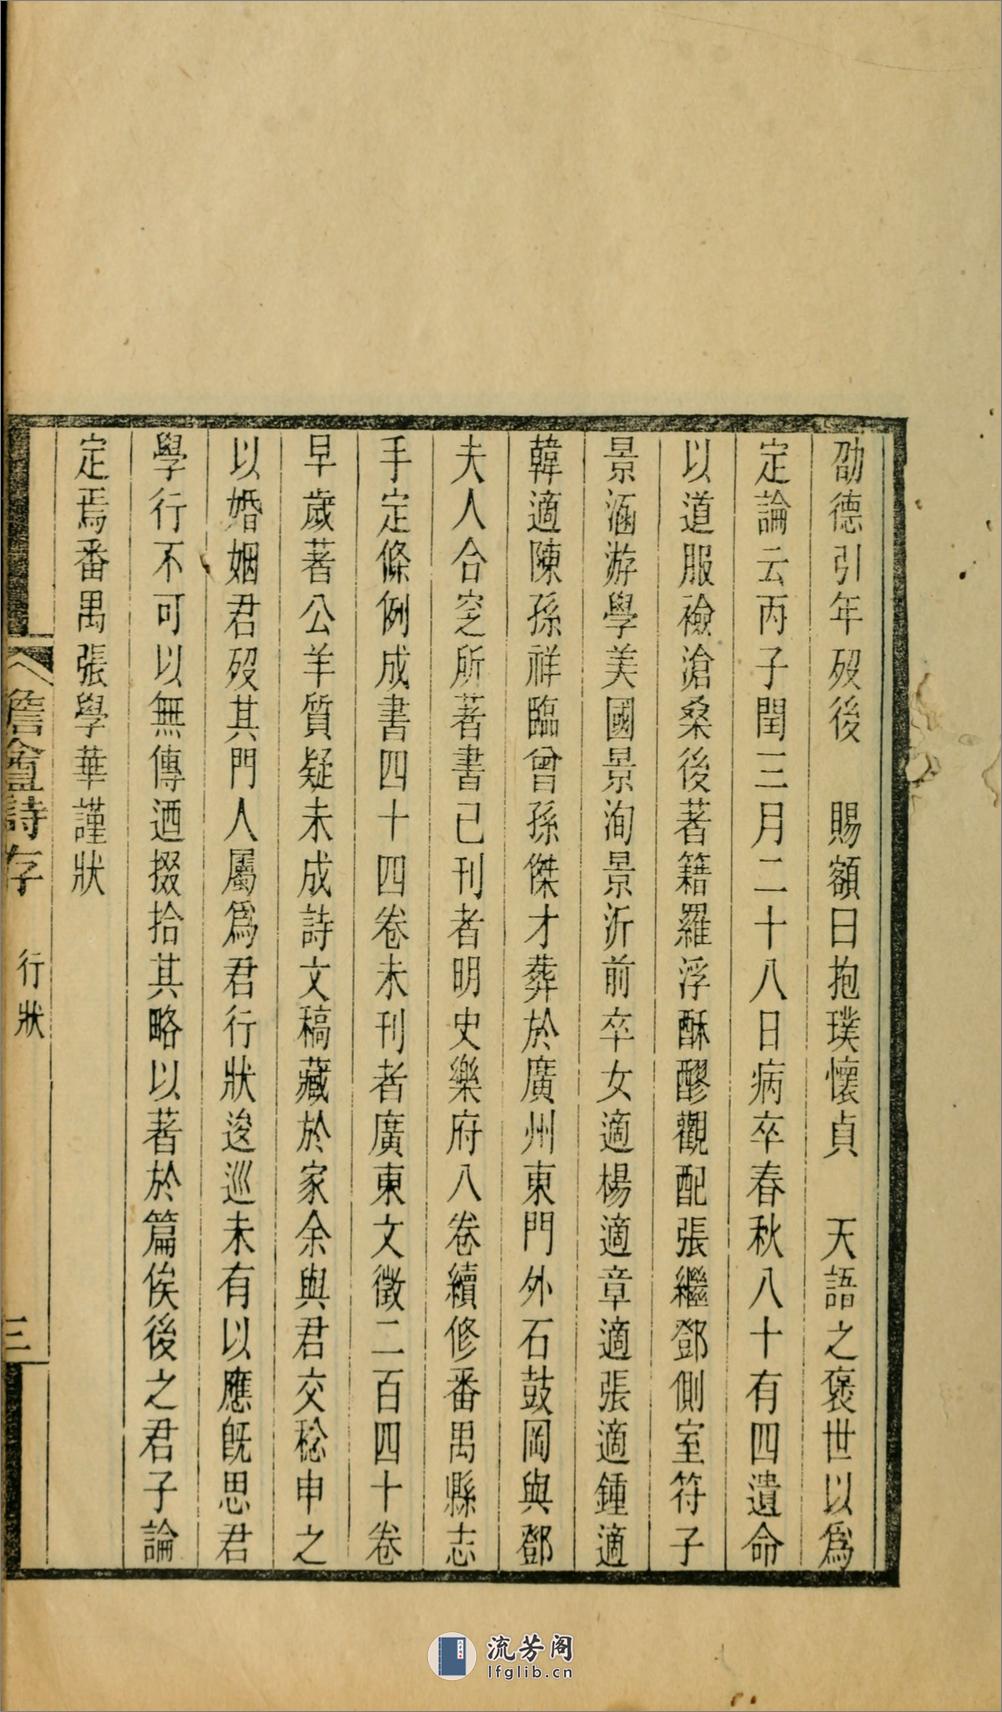 劭德引年歿後　賜額曰抱璞懷貞　天語之褒世以爲
定論云丙子閏三月二十八日病卒春秋八十有四遺命
以道服殮滄桑後著籍羅浮酥醪觀配張繼鄧側室符子
景涵游學美國景洵景沂前卒女適楊適章適張適鍾適
韓適陳孫祥臨曾孫傑才葬於廣州東門外石鼓岡與鄧
夫人合窆所著書已刊者明史樂府八卷續修番禺縣志
手定條例成書四十四卷未刊者廣東文徵二百四十卷
早歲著公羊質疑未成詩文稿藏於家余與君交稔申之
以婚姻君歿其門人屬爲君行狀逡巡未有以應旣思君
學行不可以無傳迺掇拾其略以著於篇俟後之君子論
定焉番禺張學華謹狀
詹盦詩存　行狀　三
流芳阁
lfglib.cn